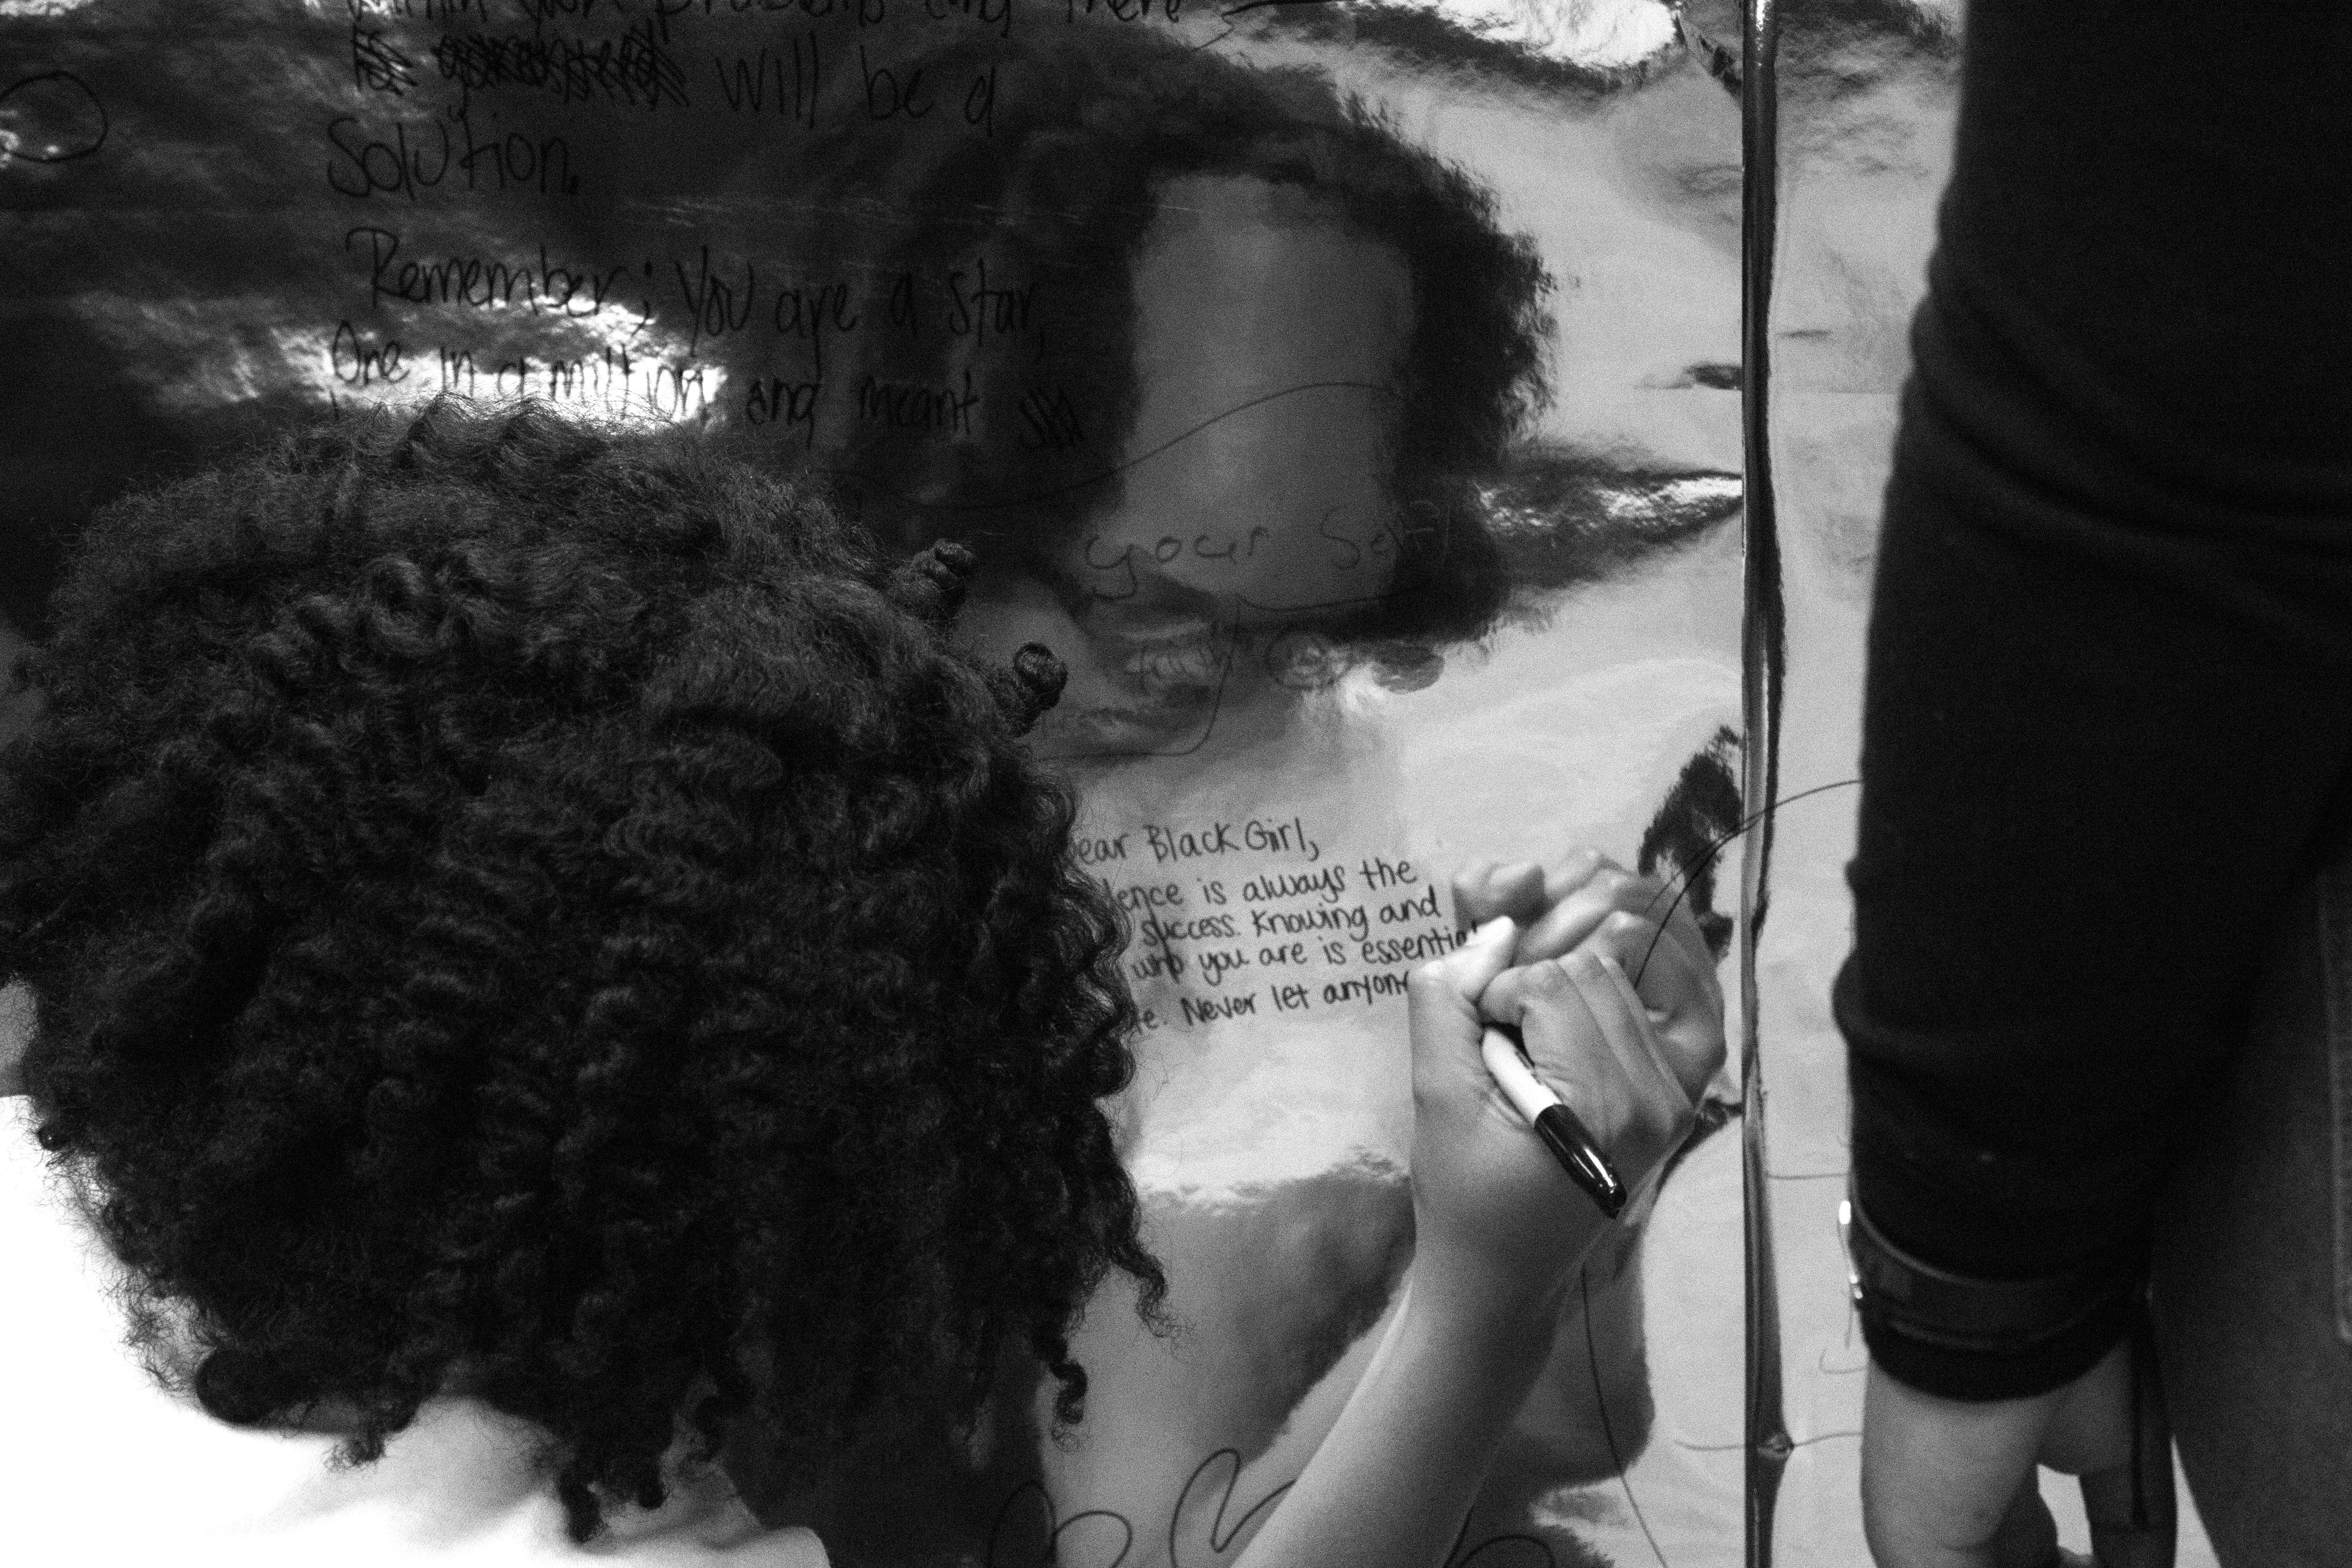 within your problems and there
will be a
Solution.
Remember; You are a star,
One in a million and meant
your self!
ear Black Girl,
dence is always the
success. Knowing and
who you are is essential
Never let anyone